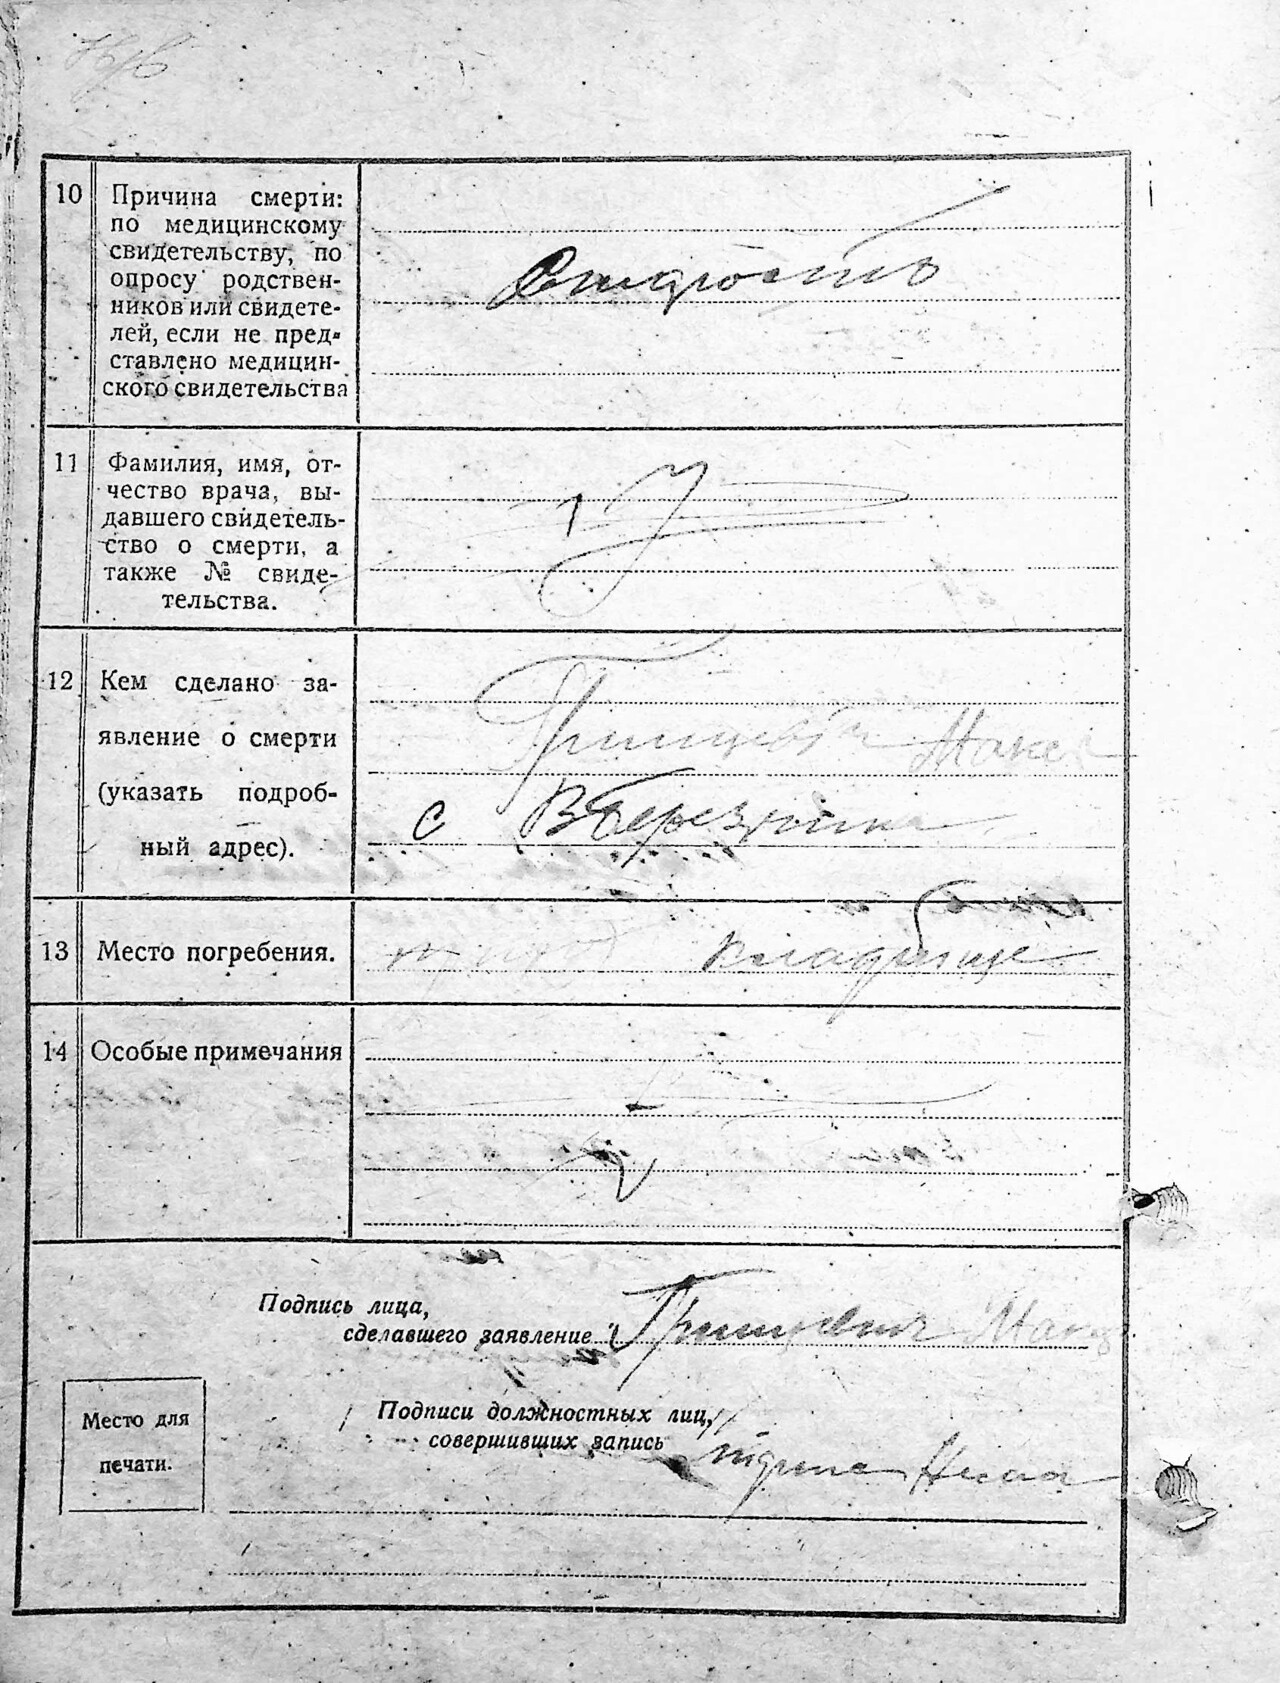 10 Причина смерти:
по медицинскому
свидетельству, по
опросу родствен-
ников или свидете-
лей, если не пред-
ставлено медицин-
ского свидетельства
Старость
11 Фамилия, имя, от-
чество врача, вы-
давшего свидетель-
ство о смерти, а
также № свиде-
тельства.
12 Кем сделано за-
явление о смерти
(указать подроб-
ный адрес).
Гринцевич
с
13 Место погребения.
кладбище
14 Особые примечания
Подпись лица,
сделавшего заявление Гринцевич
Подписи должностных лиц,
совершивших запись
Место для
печати.